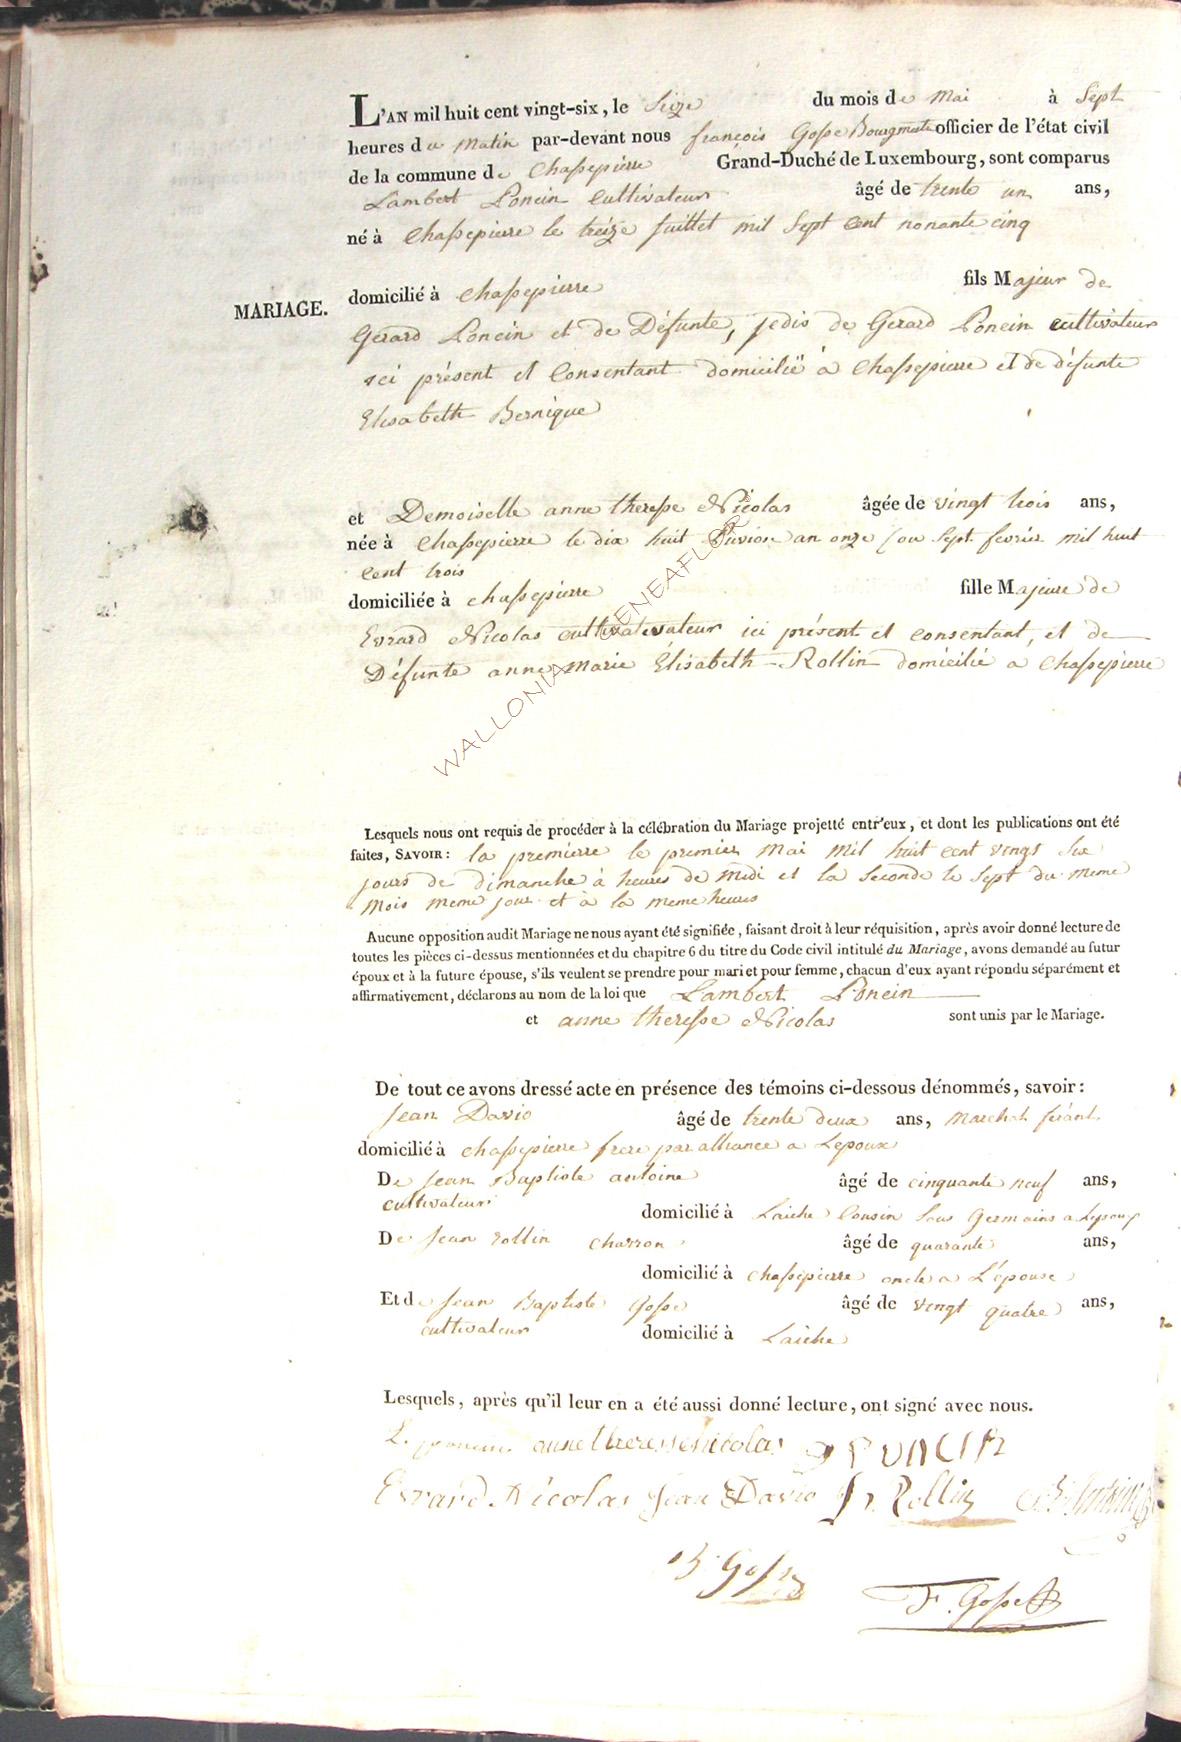 L'AN mil huit cent vingt-six, le Seize du mois de Mai à Sept
heures du Matin par-devant nous françois Gosse Bourgmestre officier de l'état civil
de la commune de Chassepierre Grand-Duché de Luxembourg, sont comparus
Lambert Poncin cultivateur âgé de trente un ans,
né à Chassepierre le treize Juillet mil Sept Cent nonante cinq
MARIAGE.
domicilié à Chassepierre fils Majeur de
Gerard Poncin et de Défunte, jedis de Gerard Poncin cultivateur
ici présent et Consentant domicilié à Chassepierre et de défunte
Elisabeth Bernique
et Demoiselle anne theresse Nicolas âgée de vingt trois ans,
née à Chassepierre le dix huit Pluviose an onze (ou Sept fevrier mil huit
Cent trois
domiciliée à chassepierre fille Majeure de
Evrard Nicolas cultivativateur ici présent et consentant, et de
Défunte anne Marie Élisabeth Rollin domicilié a Chassepierre
WALLONIA GENEAFLOR
Lesquels nous ont requis de procéder à la célébration du Mariage projetté entr'eux, et dont les publications ont été
faites, SAVOIR : la premierre le premier Mai Mil huit cent vingt Six
jours de dimanche à heures de Midi et la Seconde le Sept du meme
Mois meme jour et à la meme heures
Aucune opposition audit Mariage ne nous ayant été signifiée, faisant droit à leur réquisition, après avoir donné lecture de
toutes les pièces ci-dessus mentionnées et du chapitre 6 du titre du Code civil intitulé du Mariage, avons demandé au futur
époux et à la future épouse, s'ils veulent se prendre pour mari et pour femme, chacun d'eux ayant répondu séparément et
affirmativement, déclarons au nom de la loi que Lambert Poncin
et anne theresse Nicolas sont unis par le Mariage.
De tout ce avons dressé acte en présence des témoins ci-dessous dénommés, savoir :
Jean Davio âgé de trente deux ans, Marechal férant
domicilié à chassepierre frere par alliance a Lepoux
De Jean Baptiste antoine âgé de cinquante neuf ans,
cultivateur domicilié à Laiche Cousin Sous Germains a Lepoux
De Jean rollin charron âgé de quarante ans,
domicilié à chassepierre oncle a L'épouse
Et de Jean Baptiste Gosse âgé de vingt quatre ans,
cultivateur domicilié à Laiche
Lesquels, après qu'il leur en a été aussi donné lecture, ont signé avec nous.
L. poncin anne theresse nicolas g PONCIN
Evrard Nicolas Jean Davio Jn Rollin Antoine
B. Gosse
F. Gosse